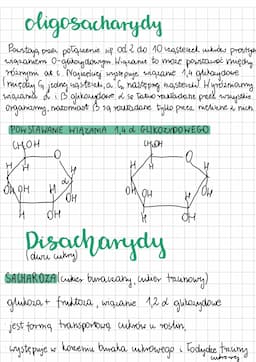 oligosacharydy
Powstają przez połączenie się od 2 do 10 cząsteczek cukrów prostych
wiązaniem O-glikozydowym. Wiązanie to może powstawać między
różnym at. C. Najczęściej występuje wiązanie 1,4 glikozydowe
(między C₁ jednej cząsteczki, a C₄ następnej cząsteczki). Wyróżniamy
wiązania α i β glikozydowe. α są łatwo rozkładane przez wszystkie
organizmy, natomiast β są rozkładane tylko przez niektóre z nich.
POWSTAWANIE WIĄZANIA 1,4 α GLIKOZYDOWEGO
CH₂OH CH₂OH
O O
H H H H
H α H
OH OH OH OH OH OH
H OH H OH
Disacharydy
(dwu cukry)
SACHAROZA (cukier buraczany, cukier trzcinowy)
glukoza + fruktoza, wiązanie 1,2 α glikozydowe
jest formą transportową cukrów u roślin,
występuje w korzeniu buraka cukrowego i łodydze trzciny
cukrowej